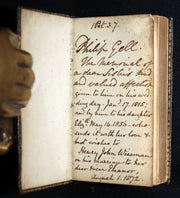 Philip Gell.
The Memorial of
a dear Sister's kind
and valued affection
given to him on his wed
ding day, Jany 17. 1815;
and by him to his daughter
Elizth May 14. 1850 - who
sends it with her love &
best wishes to
Henry John Wiseman
on his marriage to her
dear niece Eleanor,
August 1. 1872.